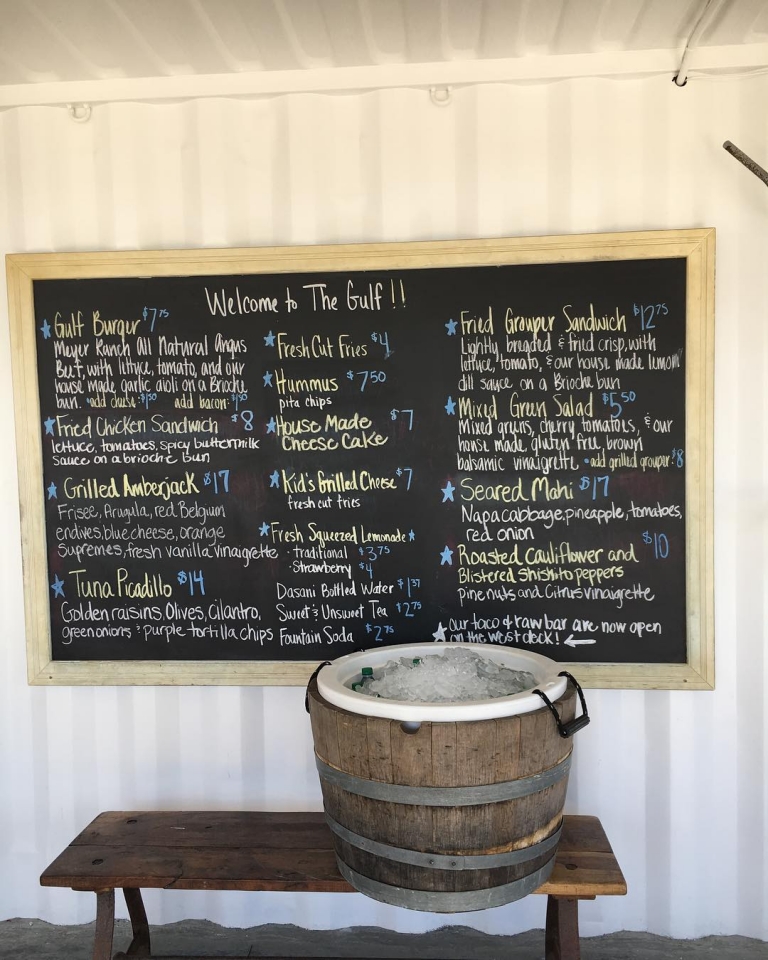 Welcome to The Gulf !!
Gulf Burger $7.75
Meyer Ranch All Natural Angus
Beef, with lettuce, tomato, and our
house made garlic aioli on a Brioche
bun. *add cheese: $1.50 add bacon: $1.50
Fried Chicken Sandwich $8
lettuce, tomatoes, spicy buttermilk
sauce on a brioche bun
Grilled Amberjack $17
Frisee, Arugula, red Belgium
endives, blue cheese, orange
supremes, fresh vanilla vinaigrette
Tuna Picadillo $14
Golden raisins, Olives, cilantro,
green onions & purple tortilla chips
Fresh Cut Fries $4
Hummus $7.50
pita chips
House Made $7
Cheese Cake
Kid's Grilled Cheese $7
fresh cut fries
Fresh Squeezed Lemonade
· traditional $3.75
· Strawberry $4
Dasani Bottled Water $1.37
Sweet & Unsweet Tea $2.75
Fountain Soda $2.75
Fried Grouper Sandwich $12.75
Lightly breaded & fried crisp, with
lettuce, tomato, & our house made lemon
dill sauce on a Brioche bun
Mixed Green Salad $5.50
Mixed greens, cherry tomatoes, & our
house made gluten free brown
balsamic vinaigrette *add grilled grouper $8
Seared Mahi $17
Napa cabbage, pineapple, tomatoes,
red onion
Roasted Cauliflower and $10
Blistered shishito peppers
pine nuts and Citrus vinaigrette
our taco & raw bar are now open
on the west deck! ←